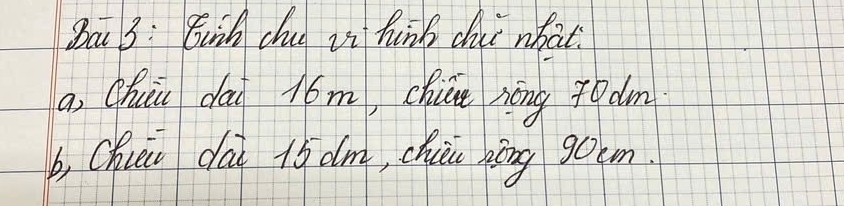 Bài 3: Tính chu vi hình chữ nhật.
a, Chiều dài 16m, chiều rộng 70dm.
b, Chiều dài 15dm, chiều rộng 90cm.